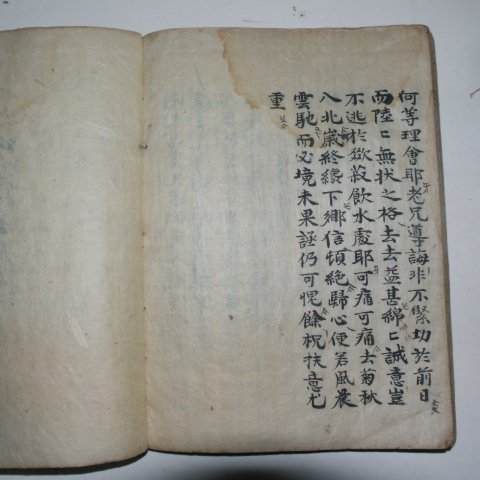 何等理會耶老兄導誨非不緊切於前日
而陸〻無状之格去去益甚綿〻誠意豈
不逃於飲水處耶可痛可痛去菊秋
入北歲終纔下鄉信頓絶歸心便若風晨
雲馳而必境未果誕仍可愧餘祝扶意尤
重